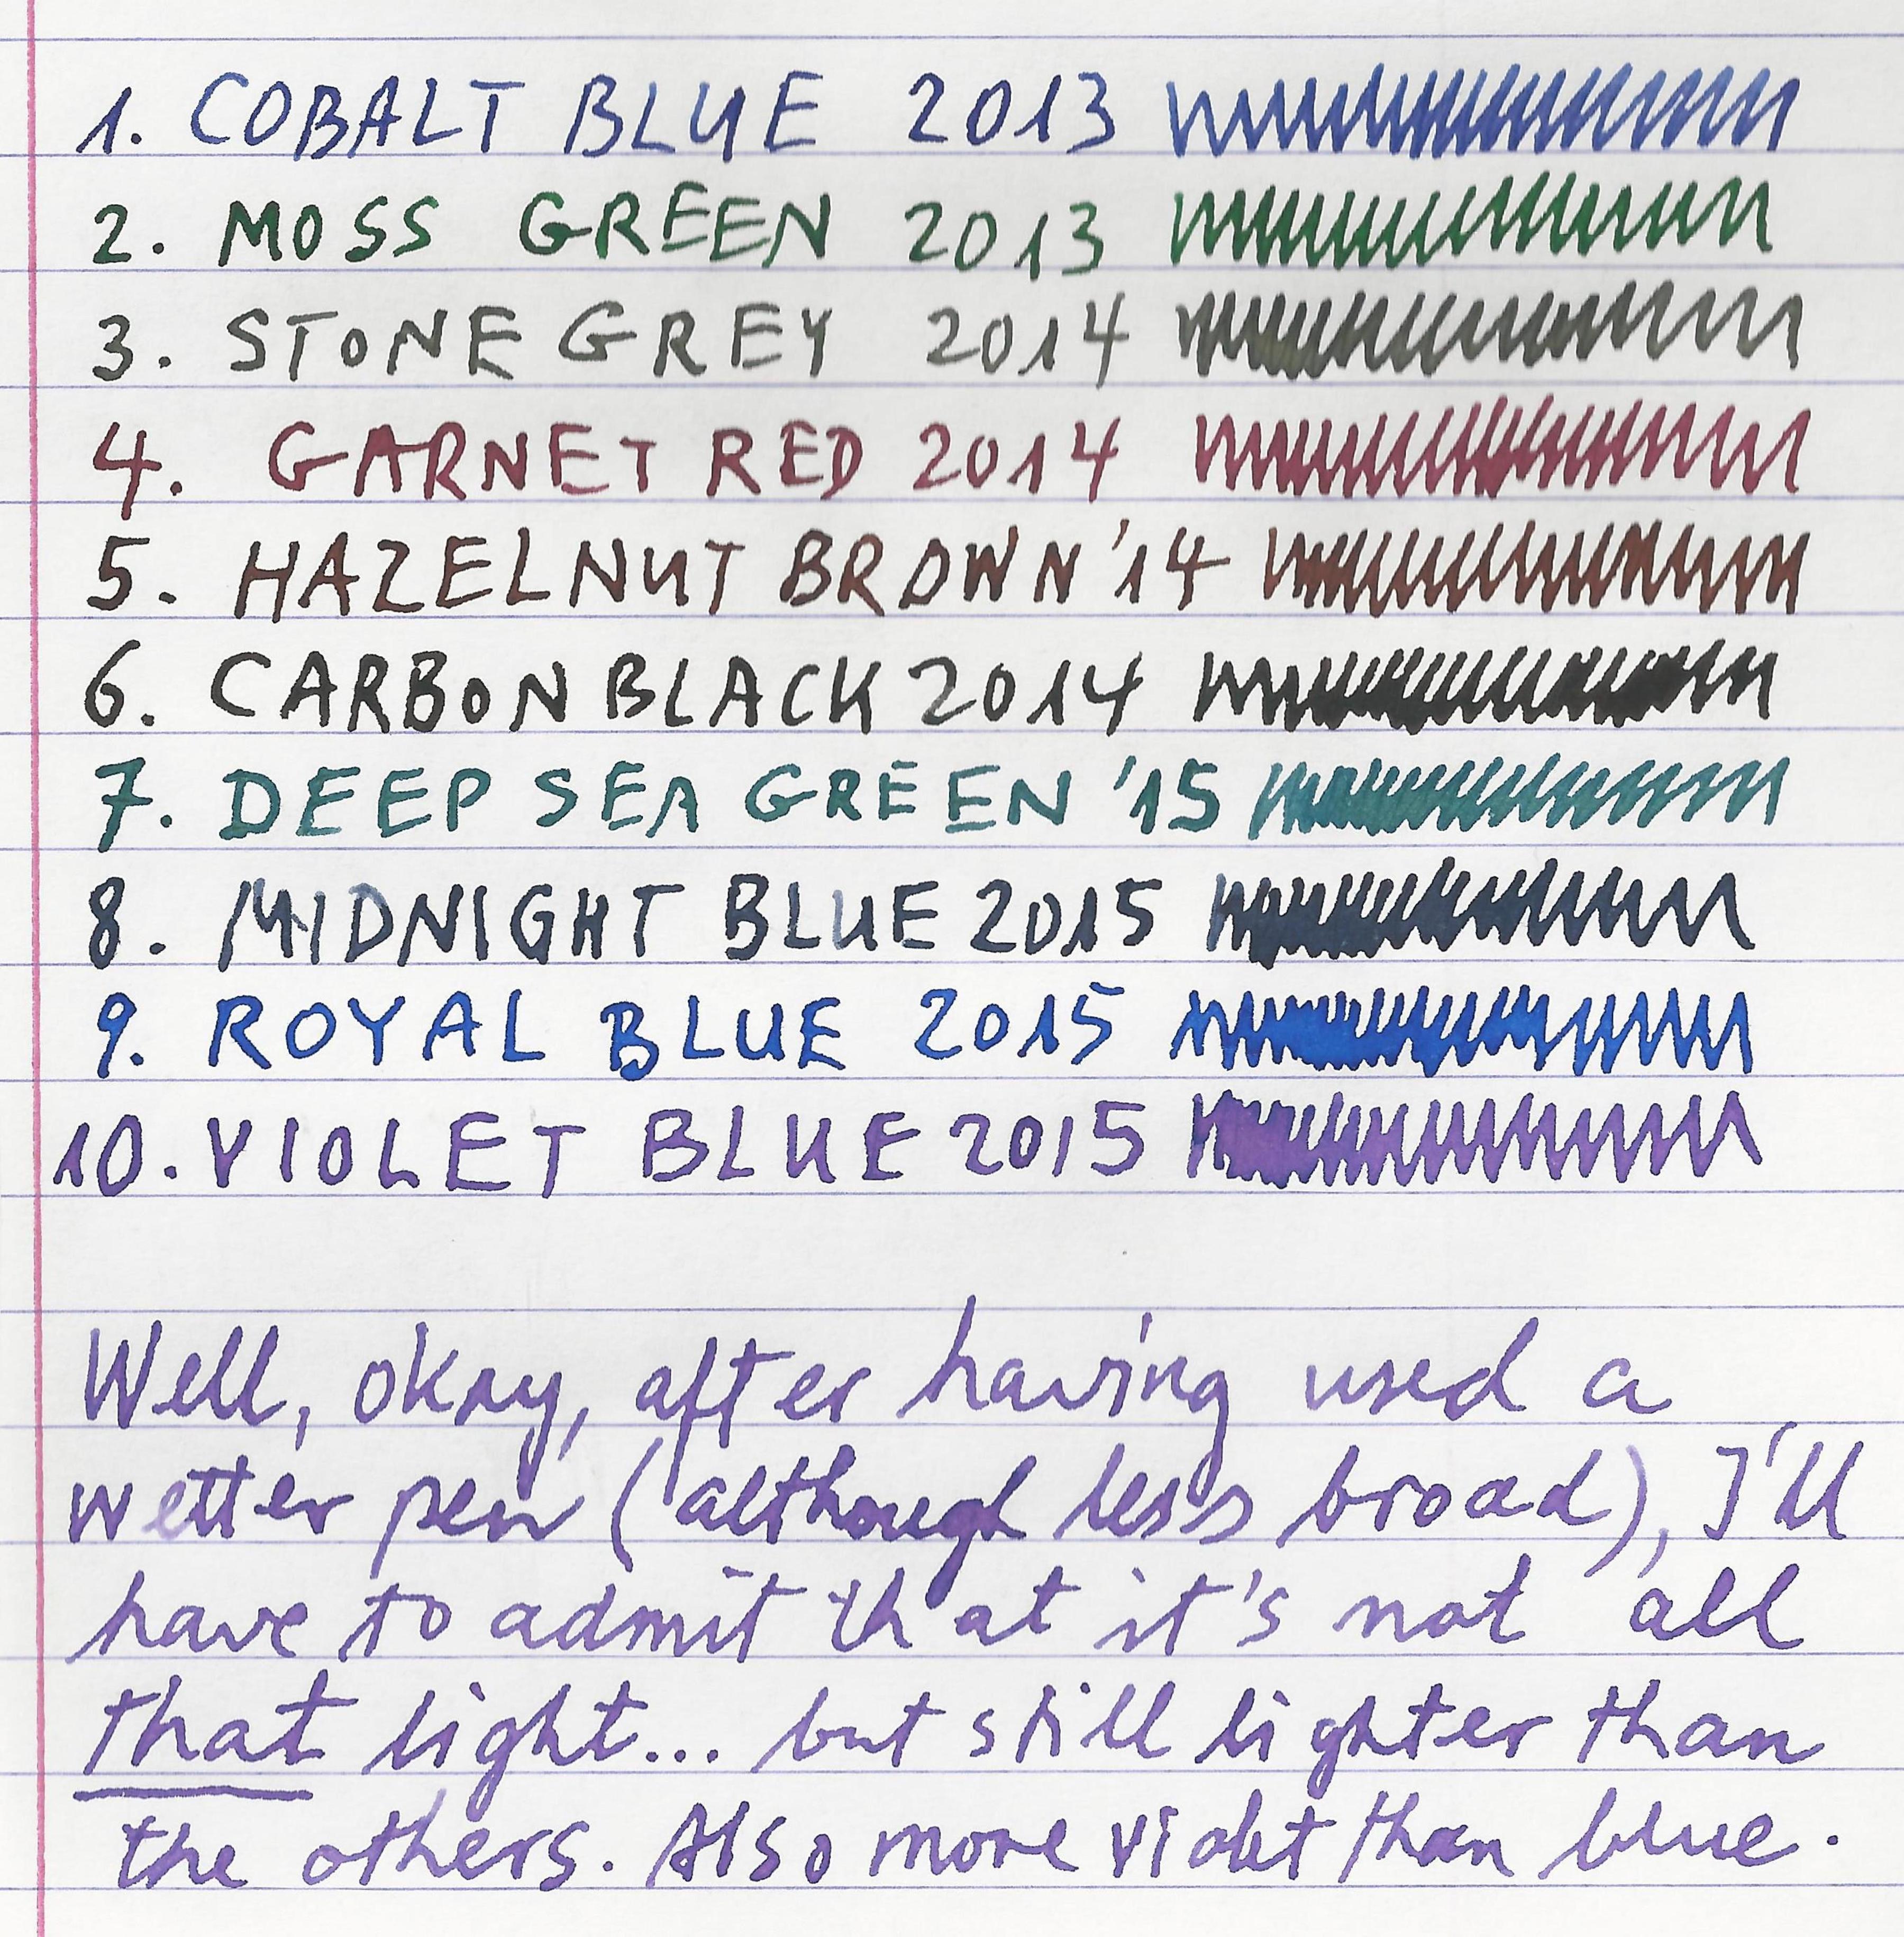 1. COBALT BLUE 2013
2. MOSS GREEN 2013
3. STONE GREY 2014
4. GARNET RED 2014
5. HAZELNUT BROWN '14
6. CARBON BLACK 2014
7. DEEP SEA GREEN '15
8. MIDNIGHT BLUE 2015
9. ROYAL BLUE 2015
10. VIOLET BLUE 2015
Well, okay, after having used a
wetter pen (although less broad), I'll
have to admit that it's not all
that light... but still lighter than
the others. Also more violet than blue.